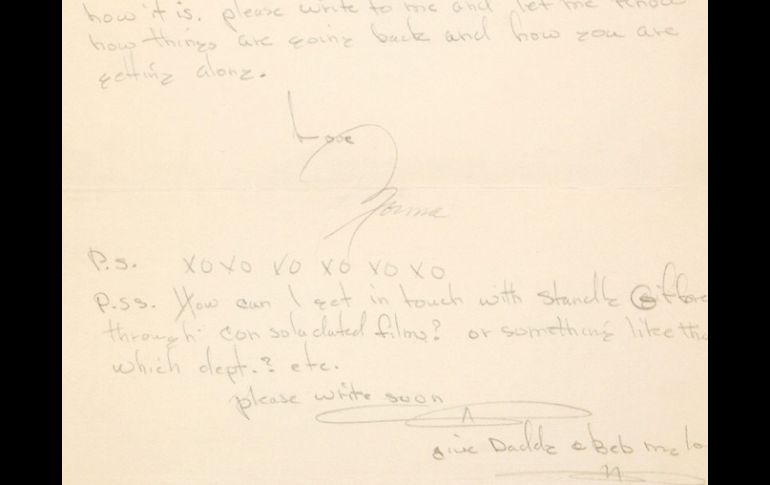 how it is. please write to me and let me know
how things are going back and how you are
getting along.
Love
Norma
P.s. XOXO XO XO XO XO
P.ss. How can I get in touch with
through consoladated films? or something like tha
which dept.? etc.
please write soon
give Daddy & Beb me lo